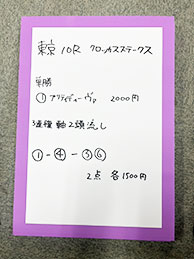 東京 10R クロッカスステークス
単勝
① アクティディーヴァ 2000円
3連複 軸2頭流し
①-④-③⑥
2点 各1500円